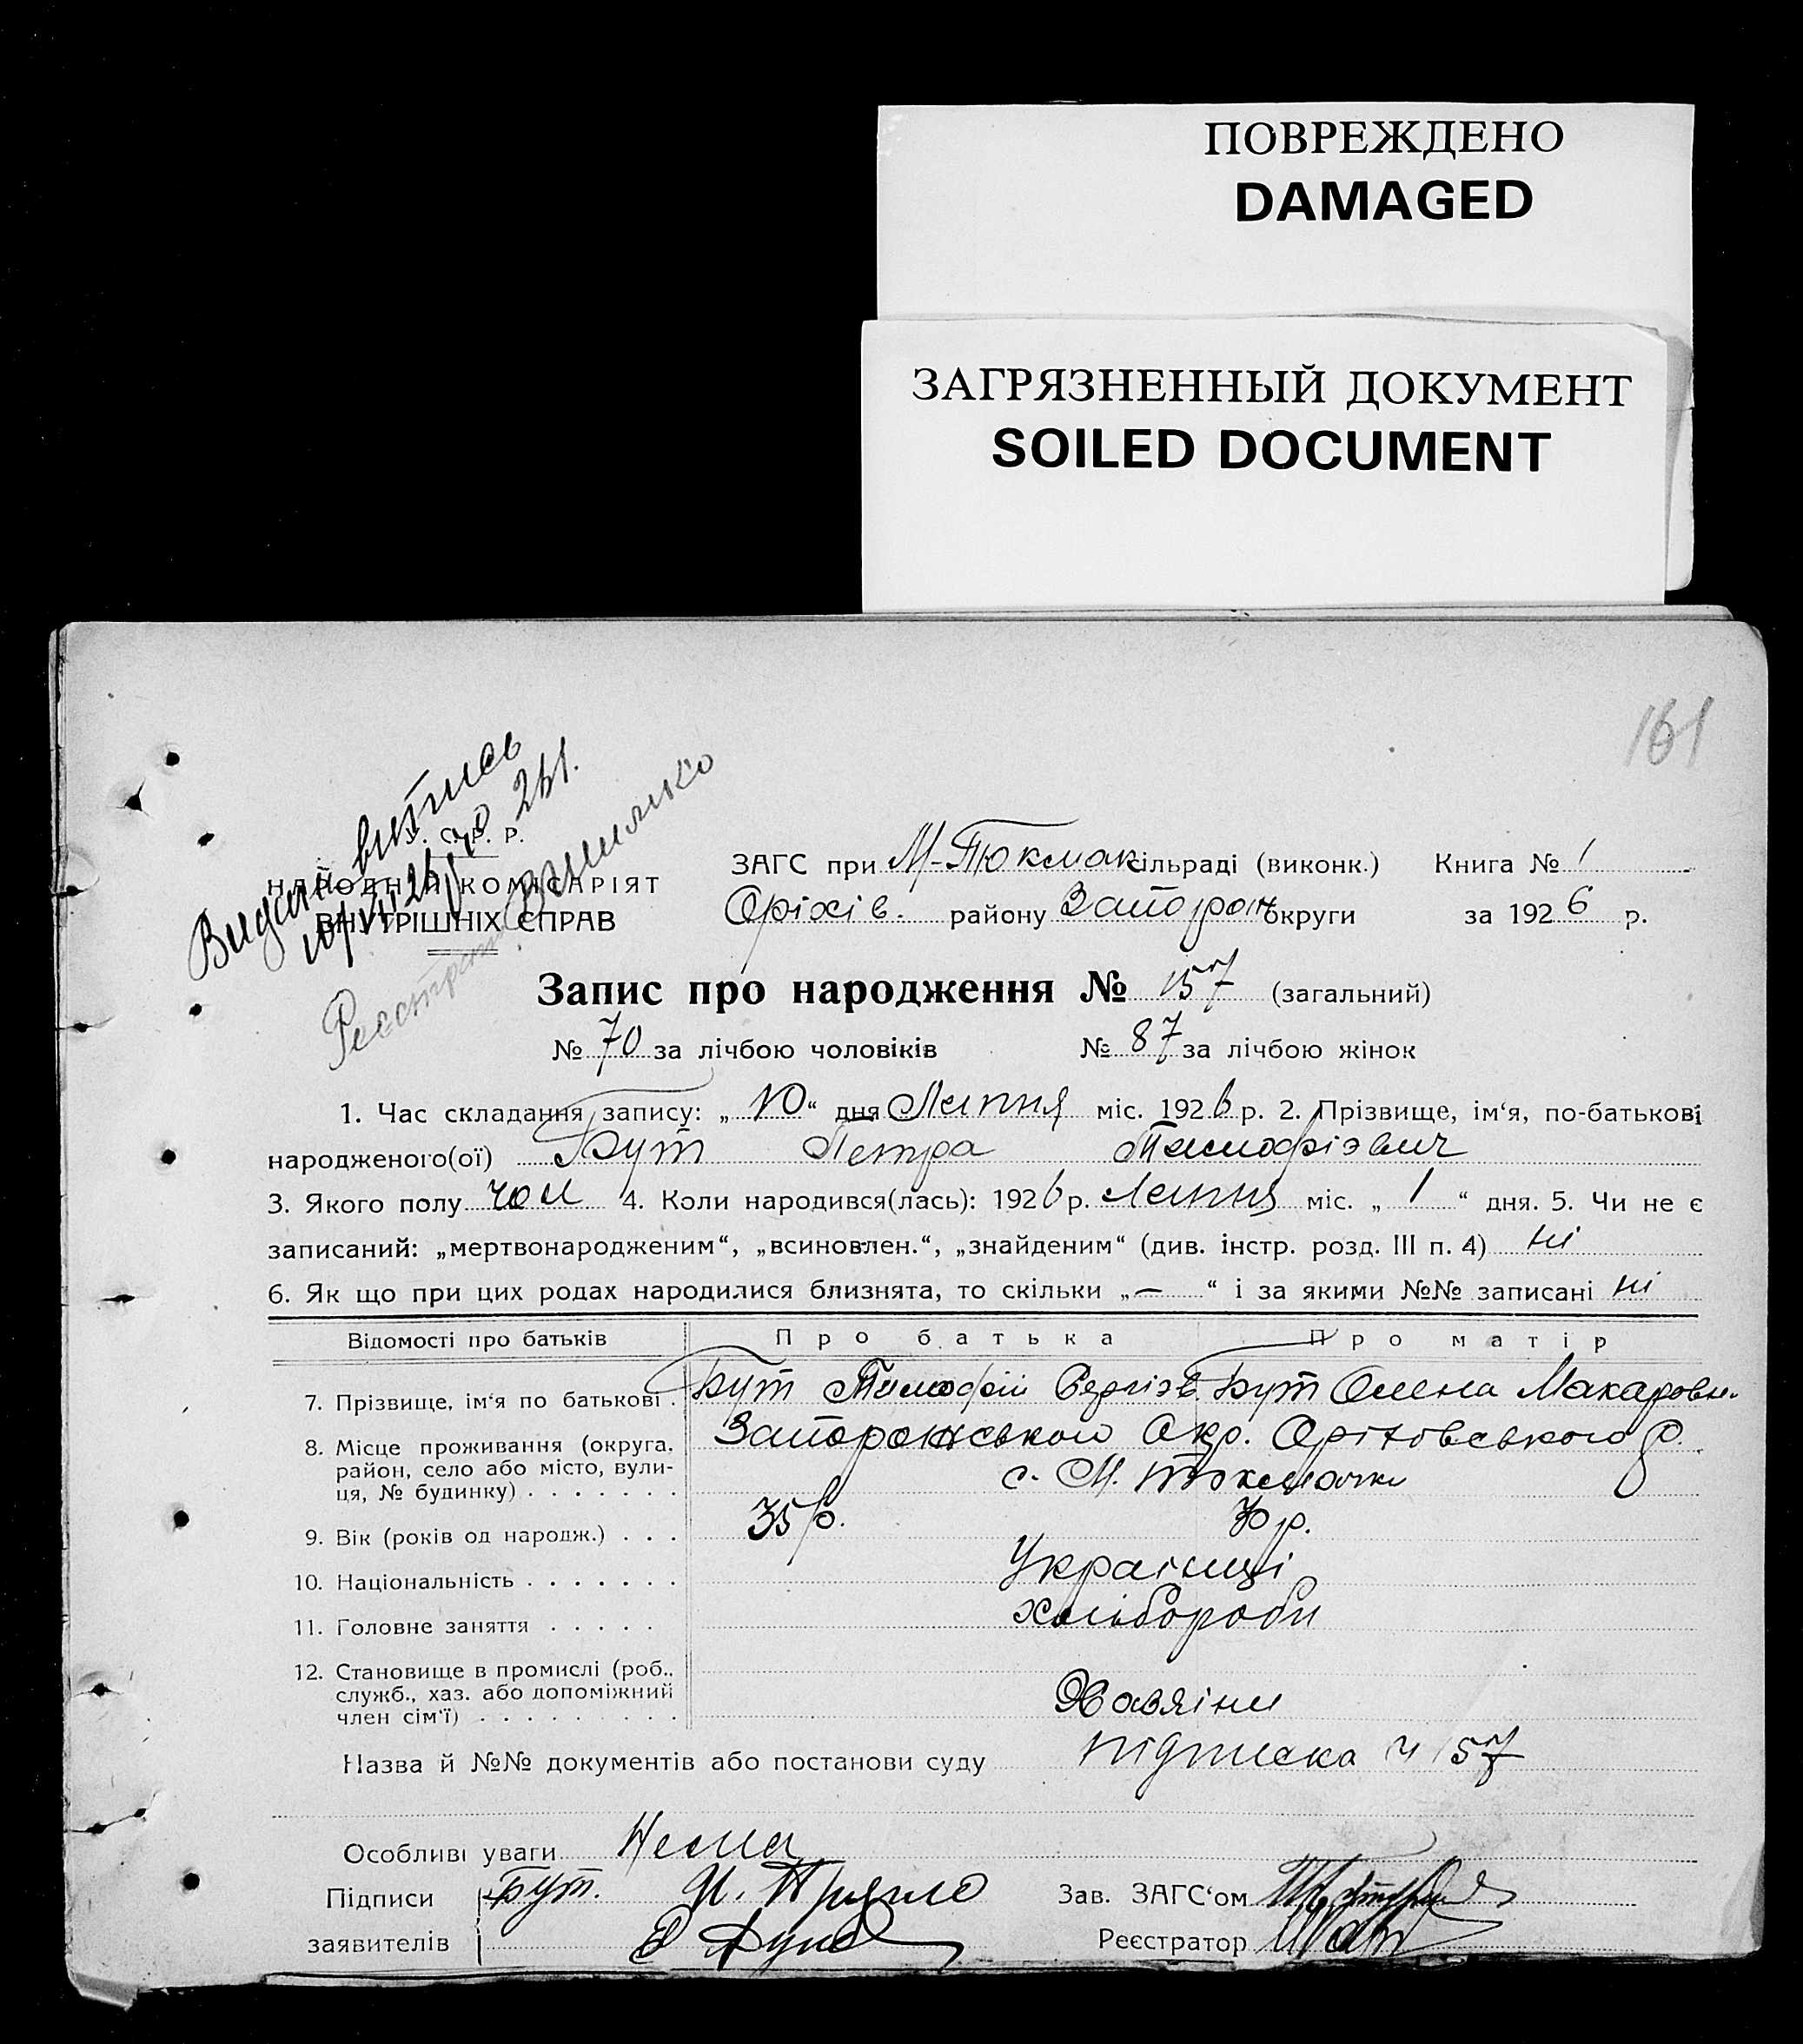 ПОВРЕЖДЕНО
DAMAGED
ЗАГРЯЗНЕННЫЙ ДОКУМЕНТ
SOILED DOCUMENT
161
Видано витись
10/VII 26
Реєстрат
У. С. Р. Р.
НАРОДНІЙ КОМІСАРІЯТ
ВНУТРІШНІХ СПРАВ
ЗАГС при М-Токмак сільраді (виконк.) Книга № 1
Оріхів. району Запорож округи за 1926 р.
Запис про народження № 157 (загальний)
№ 70 за лічбою чоловіків № 87 за лічбою жінок
1. Час складання запису: „10“ дня Липня міс. 1926 р. 2. Прізвище, ім'я, по-батькові
народженого(ої) Бут Петра Тимофієвич
3. Якого полу чол 4. Коли народився(лась): 1926 р. Липня міс. „1“ дня. 5. Чи не є
записаний: „мертвонародженим“, „всиновлен.“, „знайденим“ (див. інстр. розд. III п. 4) ні
6. Як що при цих родах народилися близнята, то скільки „—“ і за якими №№ записані ні
Відомості про батьків Про батька Про матір
7. Прізвище, ім'я по батькові . Бут Тимофій Сергіэв. Бут Олена Макаровн.
8. Місце проживання (округа, Запорожського Окр. Оріховського р.
район, село або місто, вули- с. М. Токмачки
ця, № будинку) . . . . . . .
9. Вік (років од народж.) . . . 35 р. 30 р.
10. Національність . . . . . . . Українці
11. Головне заняття . . . . . хлібороби
12. Становище в промислі (роб.,
служб., хаз. або допоміжний Хазяїни
член сім'ї) . . . . . . . . .
Назва й №№ документів або постанови суду підписка ч 157
Особливі уваги Нема
Підписи Бут. Зав. ЗАГС'ом
заявителів Реєстратор